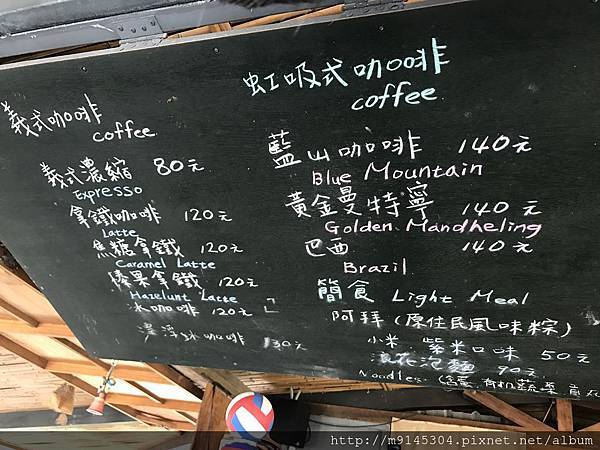 義式咖啡
coffee
義式濃縮 80元
Expresso
拿鐵咖啡 120元
Latte
焦糖拿鐵 120元
Caramel Latte
榛果拿鐵 120元
Hazelunt Latte
冰咖啡 120元
漂浮冰咖啡 130元
虹吸式咖啡
coffee
藍山咖啡 140元
Blue Mountain
黃金曼特寧 140元
Golden Mandheling
巴西 140元
Brazil
簡食 Light Meal
阿拜(原住民風味粽)
小米 紫米口味 50元
浪花泡麵 90元
Noodles (含蛋 有机蔬菜
http://m9145304.pixnet.net/album